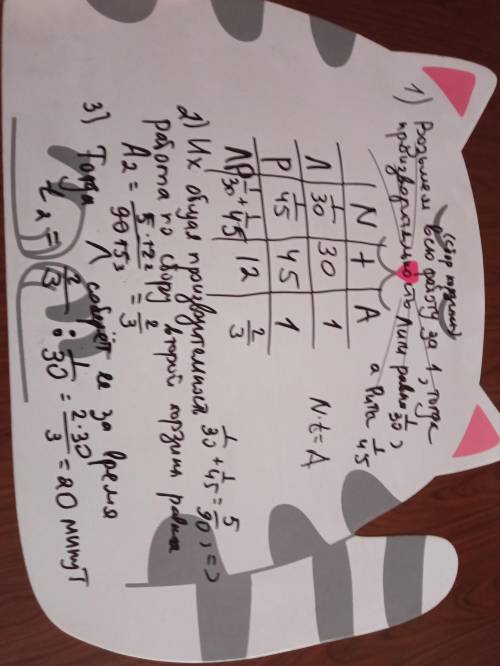 1) Возьмем всю работу за 1, тогда
(сбор корзины)
производительность Лили равна 1/30,
а Рита 1/45
N t A
Л 1/30 30 1
Р 1/45 45 1
ЛР 1/30 + 1/45 12 2/3
N·t=A
2) Их общая производительность 1/30 + 1/45 = 5/90, =>
работа по сбору второй корзины равна
A2 = 5·12/90 = 2/3
3) Тогда Л соберёт её за время
t2 = 2/3 : 1/30 = 2·30/3 = 20 минут